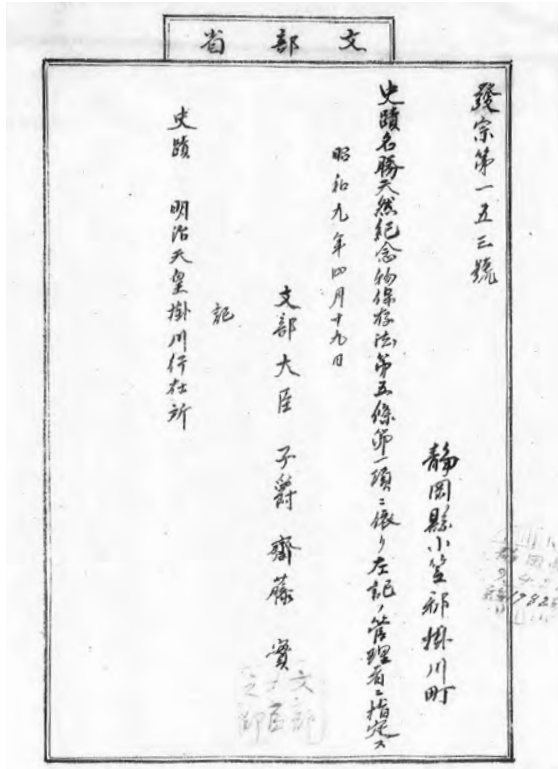 文部省
發宗第一五三號
静岡縣小笠郡掛川町
史蹟名勝天然紀念物保存法第五條第一項ニ依リ左記ノ管理者ニ指定ス
昭和九年四月十九日
文部大臣 子爵 齋藤 實
文部大臣之印
記
史蹟 明治天皇掛川行在所